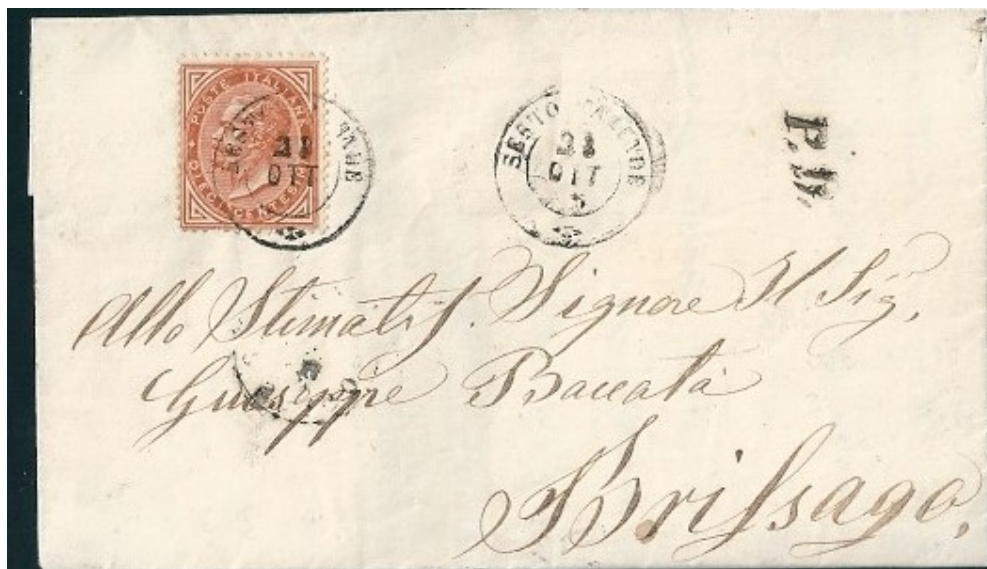 POSTE ITALIANE
DIECI CENTESIMI
SESTO CALENDE
21
OTT
P.D.
Allo Stimatis. Signore Il Sig.
Giuseppe Baccalà
Brissago.